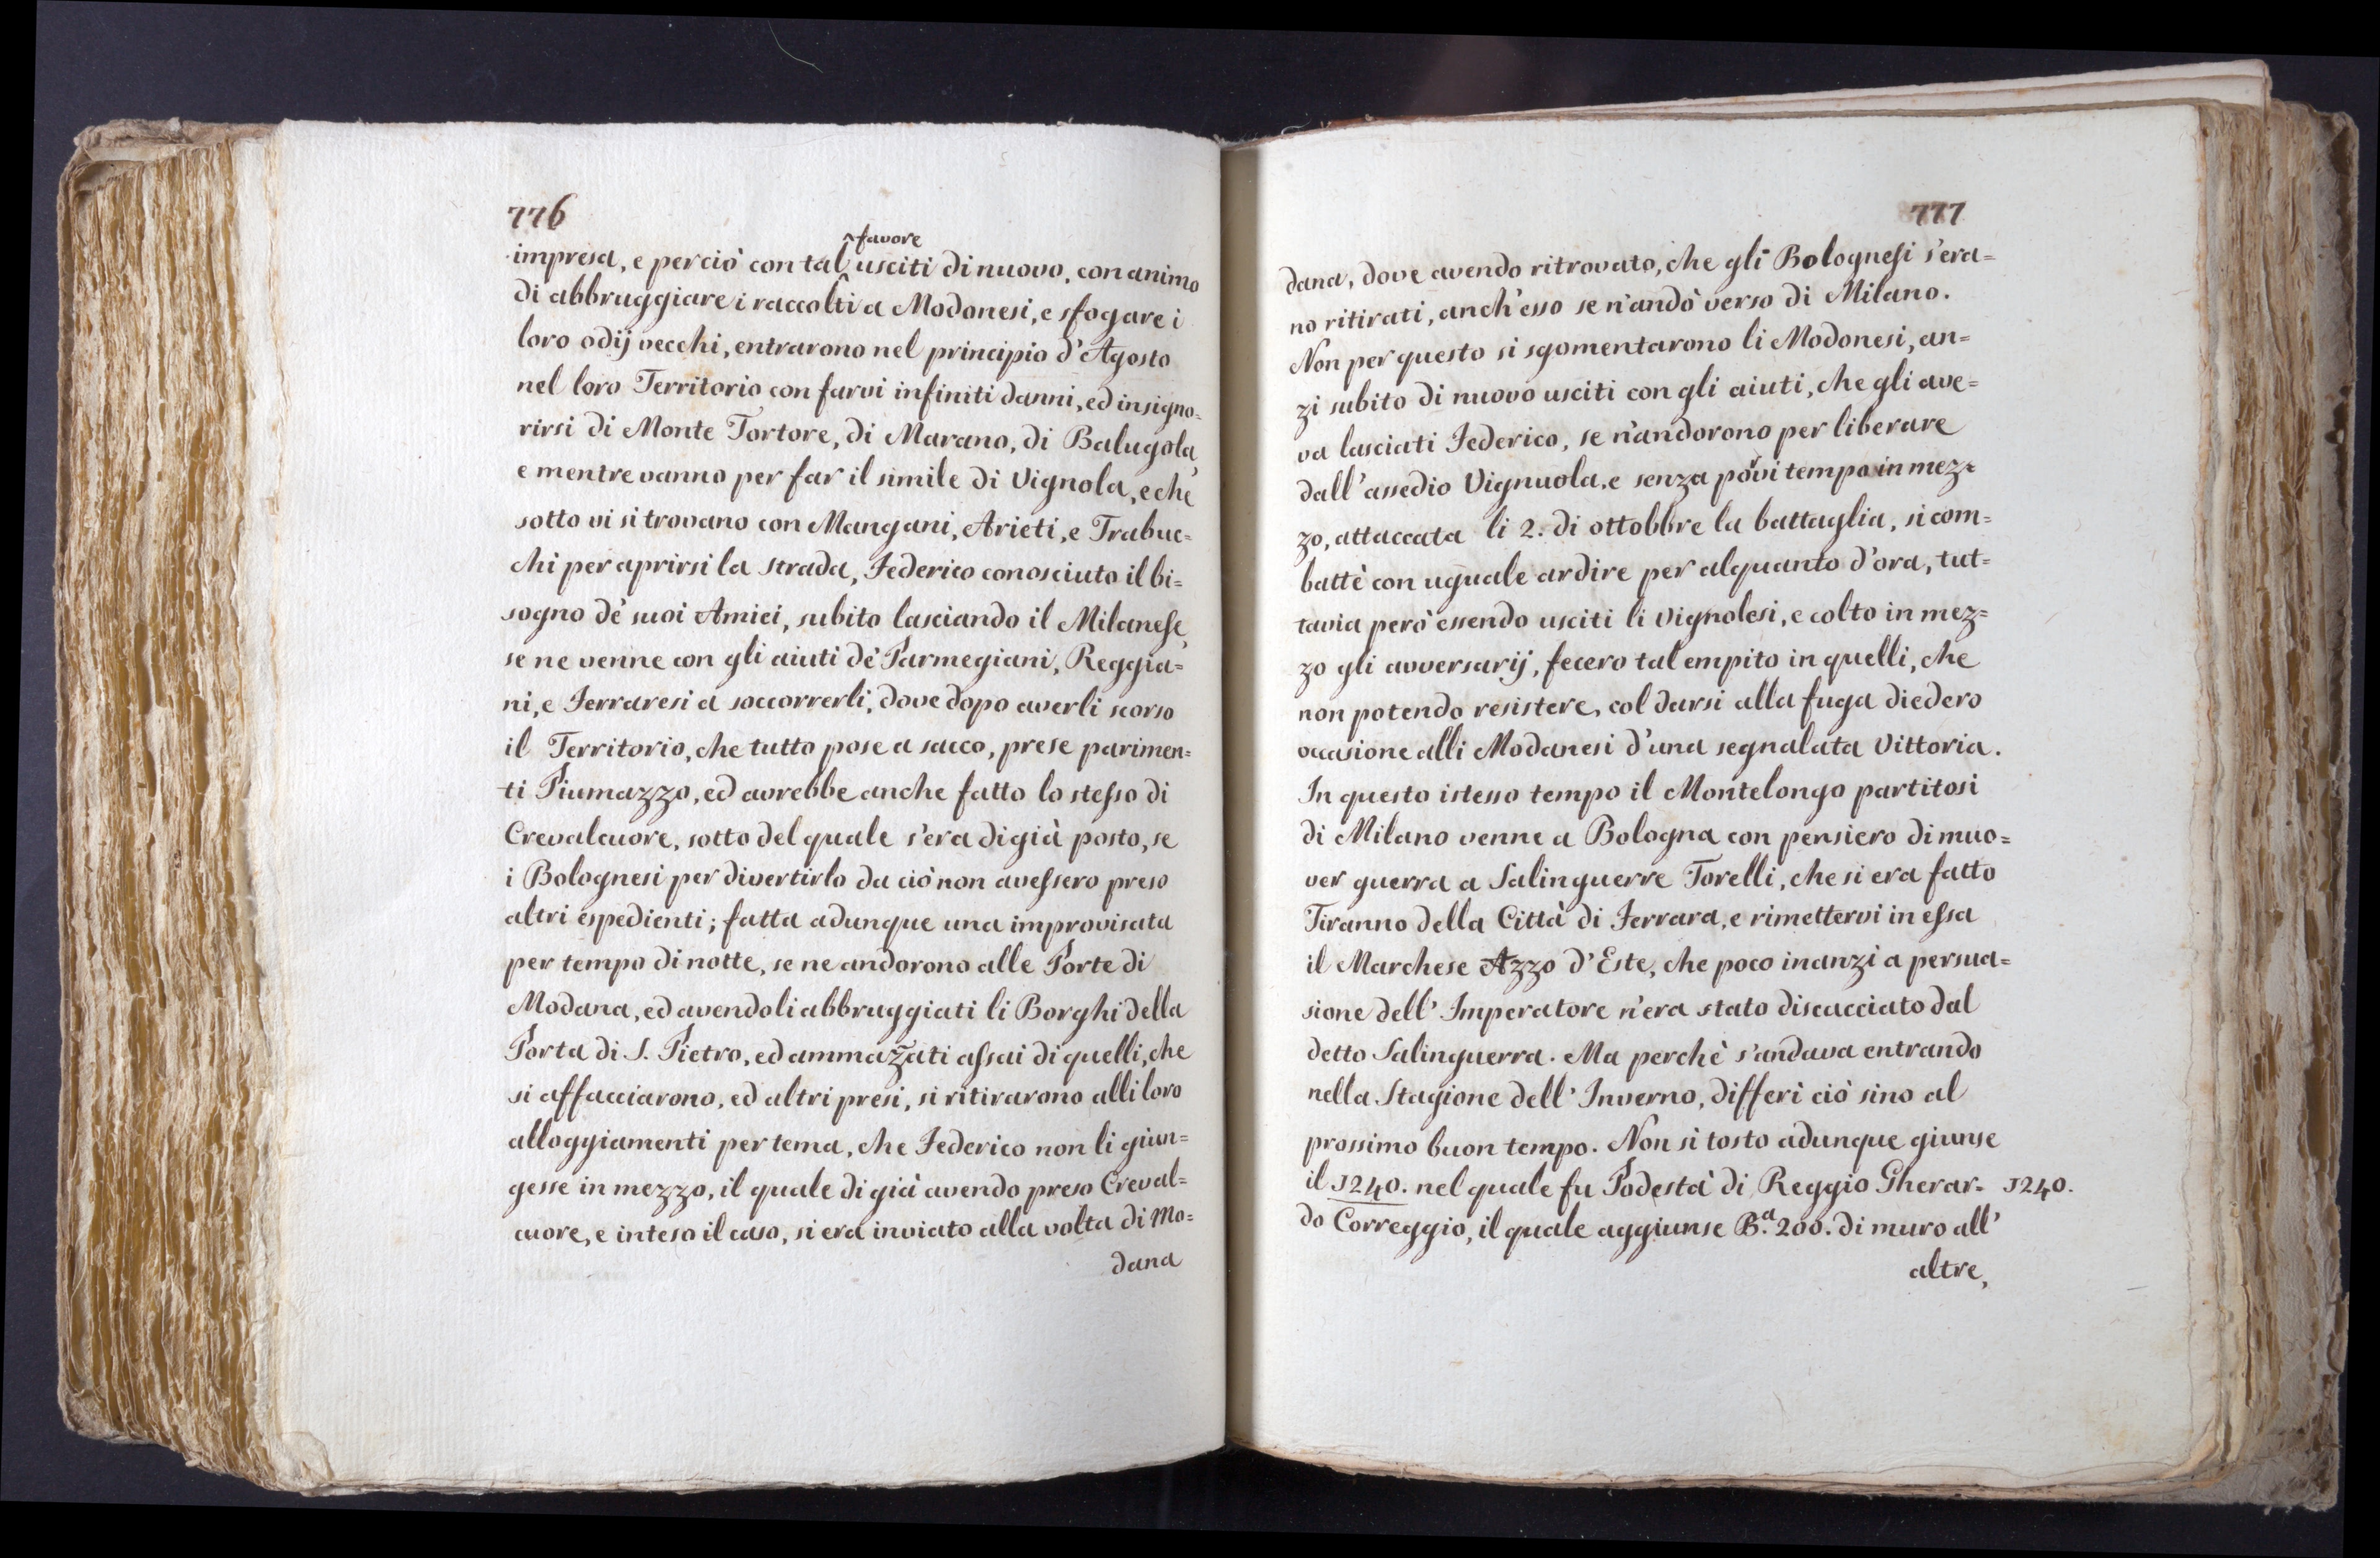 776
impresa, e perciò con tal ^favore usciti di nuovo, con animo
di abbruggiare i raccolti a Modonesi, e sfogare i
loro odij vecchi, entrarono nel principio d'Agosto
nel loro Territorio con farvi infiniti danni, ed insigno=
rirsi di Monte Tortore, di Marano, di Balugola,
e mentre vanno per far il simile di Vignola, e che
sotto vi si trovano con Mangani, Arieti, e Trabuc=
chi per aprirsi la strada, Federico conosciuto il bi=
sogno de' suoi Amici, subito lasciando il Milanese,
se ne venne con gli aiuti de' Parmegiani, Reggia=
ni, e Ferraresi a soccorrerli, dove dopo averli scorso
il Territorio, che tutto pose a sacco, prese parimen=
ti Piumazzo, ed avrebbe anche fatto lo stesso di
Crevalcuore, sotto del quale s'era digià posto, se
i Bolognesi per divertirlo da ciò non avessero preso
altri espedienti; fatta adunque una improvisata
per tempo di notte, se ne andorono alle Porte di
Modana, ed avendoli abbruggiati li Borghi della
Porta di S. Pietro, ed ammazzati assai di quelli, che
si affacciarono, ed altri presi, si ritirarono alli loro
alloggiamenti per tema, che Federico non li giun=
gesse in mezzo, il quale di già avendo preso Creval=
cuore, e inteso il caso, si era inviato alla volta di Mo=
dana
777
dana, dove avendo ritrovato, che gli Bolognesi s'era=
no ritirati, anch'esso se n'andò verso di Milano.
Non per questo si sgomentarono li Modonesi, an=
zi subito di nuovo usciti con gli aiuti, che gli ave=
va lasciati Federico, se n'andorono per liberare
dall'assedio Vignuola, e senza porvi tempo in mez=
zo, attaccata li 2. di ottobbre la battaglia, si com=
battè con uguale ardire per alquanto d'ora, tut=
tavia però essendo usciti li Vignolesi, e colto in mez=
zo gli avversarij, fecero tal empito in quelli, che
non potendo resistere, col darsi alla fuga diedero
occasione alli Modanesi d'una segnalata Vittoria.
In questo istesso tempo il Montelongo partitosi
di Milano venne a Bologna con pensiero di muo=
ver guerra a Salinguerre Torelli, che si era fatto
Tiranno della Città di Ferrara, e rimettervi in essa
il Marchese Azzo d'Este, che poco inanzi a persua=
sione dell' Imperatore n'era stato discacciato dal
detto Salinguerra. Ma perchè s'andava entrando
nella Stagione dell' Inverno, differì ciò sino al
prossimo buon tempo. Non si tosto adunque giunse
il 1240. nel quale fu Podestà di Reggio Gherar= 1240.
do Correggio, il quale aggiunse B.a 200. di muro all'
altre,